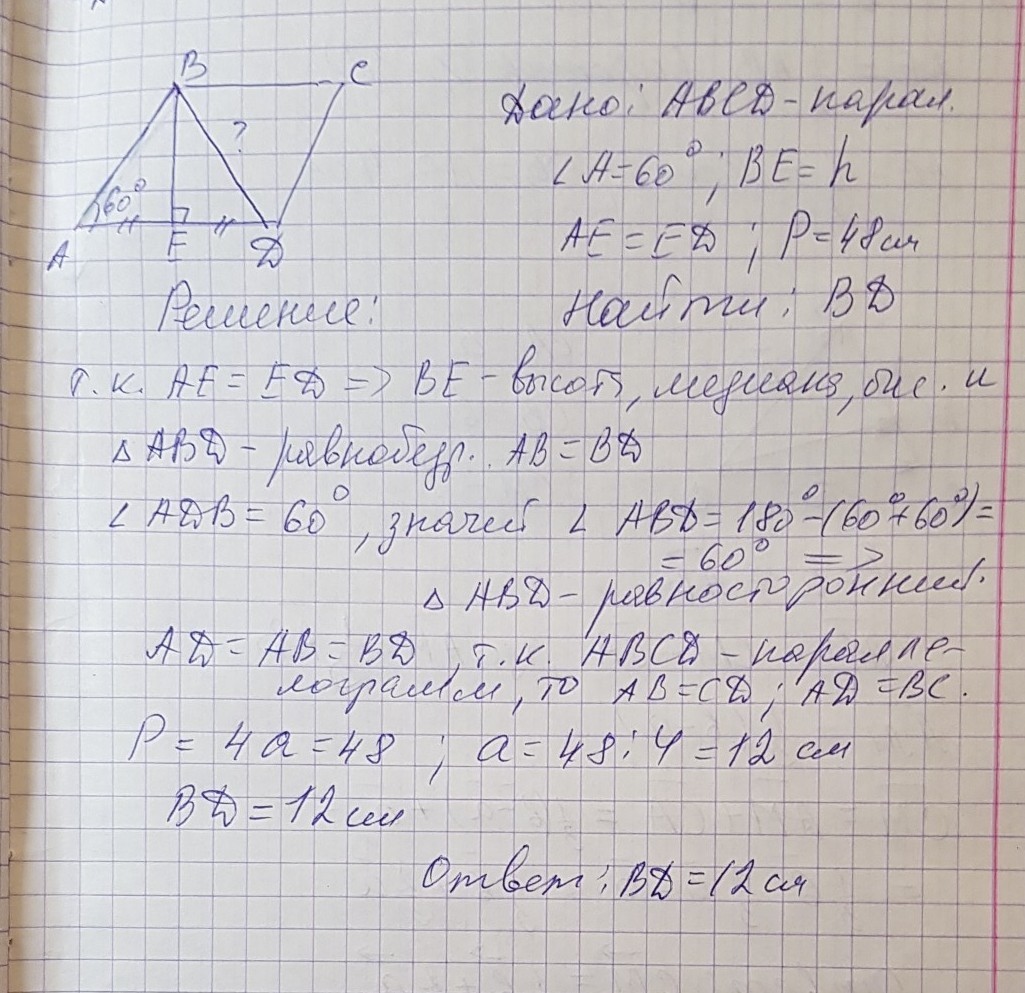 B C
?
60°
A E D
Дано: ABCD - парал.
∠A = 60°; BE = h
AE = ED; P = 48 см
Найти: BD
Решение:
т.к. AE = ED => BE - высота, медиана, бис. и
△ ABD - равнобедр. AB = BD
∠ ADB = 60°, значит ∠ ABD = 180° - (60° + 60°) =
= 60° =>
△ ABD - равносторонний.
AD = AB = BD, т.к. ABCD - паралле-
лограмм, то AB = CD; AD = BC.
P = 4a = 48; a = 48 : 4 = 12 см
BD = 12 см
Ответ: BD = 12 см